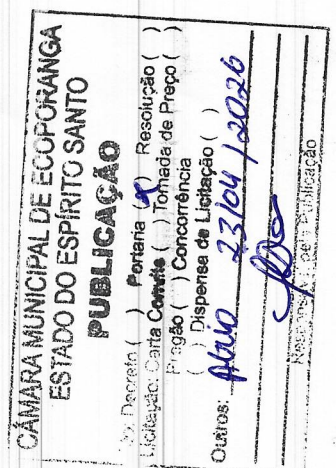 CÂMARA MUNICIPAL DE ECOPORANGA
ESTADO DO ESPÍRITO SANTO
PUBLICAÇÃO
Decreto ( ) Portaria (X) Resolução ( )
Licitação: Carta Convite ( ) Tomada de Preço ( )
Pregão ( ) Concorrência
( ) Dispensa de Licitação ( )
Outros: 23/04/2026
Responsável pela Publicação